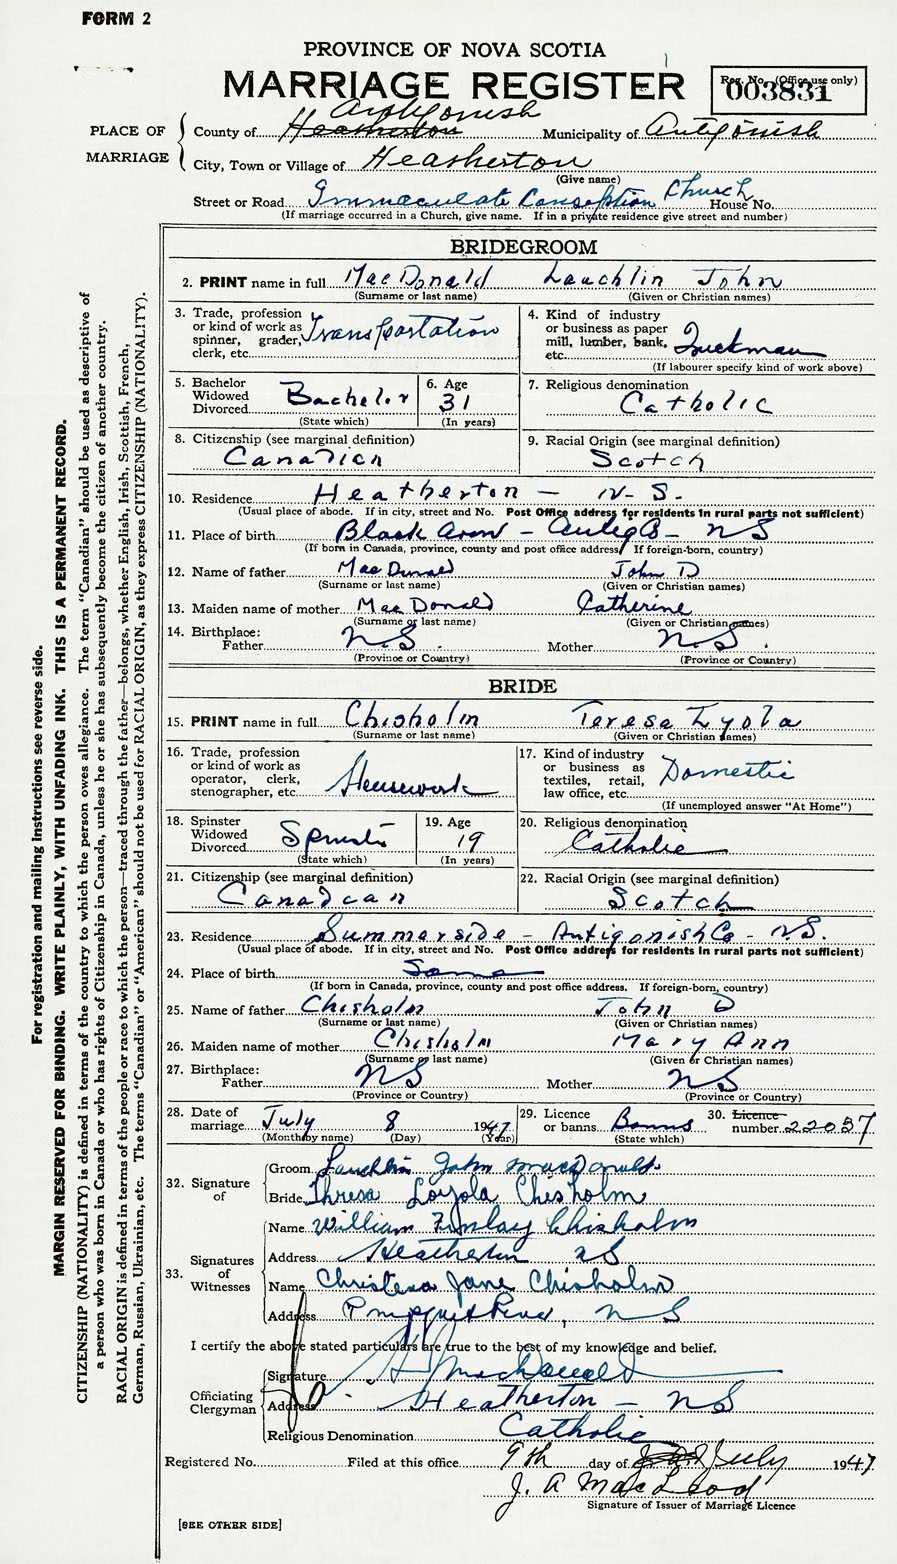 FORM 2
PROVINCE OF NOVA SCOTIA
MARRIAGE REGISTER
Reg. No. (Office use only)
003831
PLACE OF MARRIAGE
Antigonish
County of Heatherton Municipality of Antigonish
City, Town or Village of Heatherton
(Give name)
Street or Road Immaculate Conseption Church House No.
(If marriage occurred in a Church, give name. If in a private residence give street and number)
BRIDEGROOM
2. PRINT name in full MacDonald Lauchlin John
(Surname or last name) (Given or Christian names)
3. Trade, profession or kind of work as spinner, grader, clerk, etc. Transportation
4. Kind of industry or business as paper mill, lumber, bank, etc. Truckman
(If labourer specify kind of work above)
5. Bachelor Widowed Divorced Bachelor
(State which)
6. Age 31
(In years)
7. Religious denomination
Catholic
8. Citizenship (see marginal definition)
Canadian
9. Racial Origin (see marginal definition)
Scotch
10. Residence Heatherton - N.S.
(Usual place of abode. If in city, street and No. Post Office address for residents in rural parts not sufficient)
11. Place of birth Black Avon - Antig Co - NS
(If born in Canada, province, county and post office address If foreign-born, country)
12. Name of father MacDonald John D
(Surname or last name) (Given or Christian names)
13. Maiden name of mother MacDonald Catherine
(Surname or last name) (Given or Christian names)
14. Birthplace:
Father N.S. Mother N.S.
(Province or Country) (Province or Country)
BRIDE
15. PRINT name in full Chisholm Teresa Lyola
(Surname or last name) (Given or Christian names)
16. Trade, profession or kind of work as operator, clerk, stenographer, etc. Housework
17. Kind of industry or business as textiles, retail, law office, etc. Domestic
(If unemployed answer "At Home")
18. Spinster Widowed Divorced
(State which)
19. Age 19
(In years)
20. Religious denomination
Catholic
21. Citizenship (see marginal definition)
Canadian
22. Racial Origin (see marginal definition)
Scotch
23. Residence Summerside - Antigonish Co - N.S.
(Usual place of abode. If in city, street and No. Post Office address for residents in rural parts not sufficient)
24. Place of birth Same
(If born in Canada, province, county and post office address. If foreign-born, country)
25. Name of father Chisholm John D
(Surname or last name) (Given or Christian names)
26. Maiden name of mother Chisholm Mary Ann
(Surname or last name) (Given or Christian names)
27. Birthplace:
Father NS Mother NS
(Province or Country) (Province or Country)
28. Date of marriage July 8 1947
(Month by name) (Day) (Year)
29. Licence or banns Banns
(State which)
30. Licence number 22037
32. Signature of
Groom Lauchlin John MacDonald
Bride Thresa Loyola Chisholm
33. Signatures of Witnesses
Name William Finlay Chisholm
Address Heatherton NS
Name Christena Jane Chisholm
Address NS
I certify the above stated particulars are true to the best of my knowledge and belief.
Officiating Clergyman
Signature MacDonald
Address Heatherton - NS
Religious Denomination Catholic
Registered No. Filed at this office 9th day of July 1947
J. A MacLeod
Signature of Issuer of Marriage Licence
[SEE OTHER SIDE]
For registration and mailing instructions see reverse side.
MARGIN RESERVED FOR BINDING. WRITE PLAINLY, WITH UNFADING INK. THIS IS A PERMANENT RECORD.
CITIZENSHIP (NATIONALITY) is defined in terms of the country to which the person owes allegiance. The term "Canadian" should be used as descriptive of
a person who was born in Canada or who has rights of Citizenship in Canada, unless he or she has subsequently become the citizen of another country.
RACIAL ORIGIN is defined in terms of the people or race to which the person—traced through the father—belongs, whether English, Irish, Scottish, French,
German, Russian, Ukrainian, etc. The terms "Canadian" or "American" should not be used for RACIAL ORIGIN, as they express CITIZENSHIP (NATIONALITY).